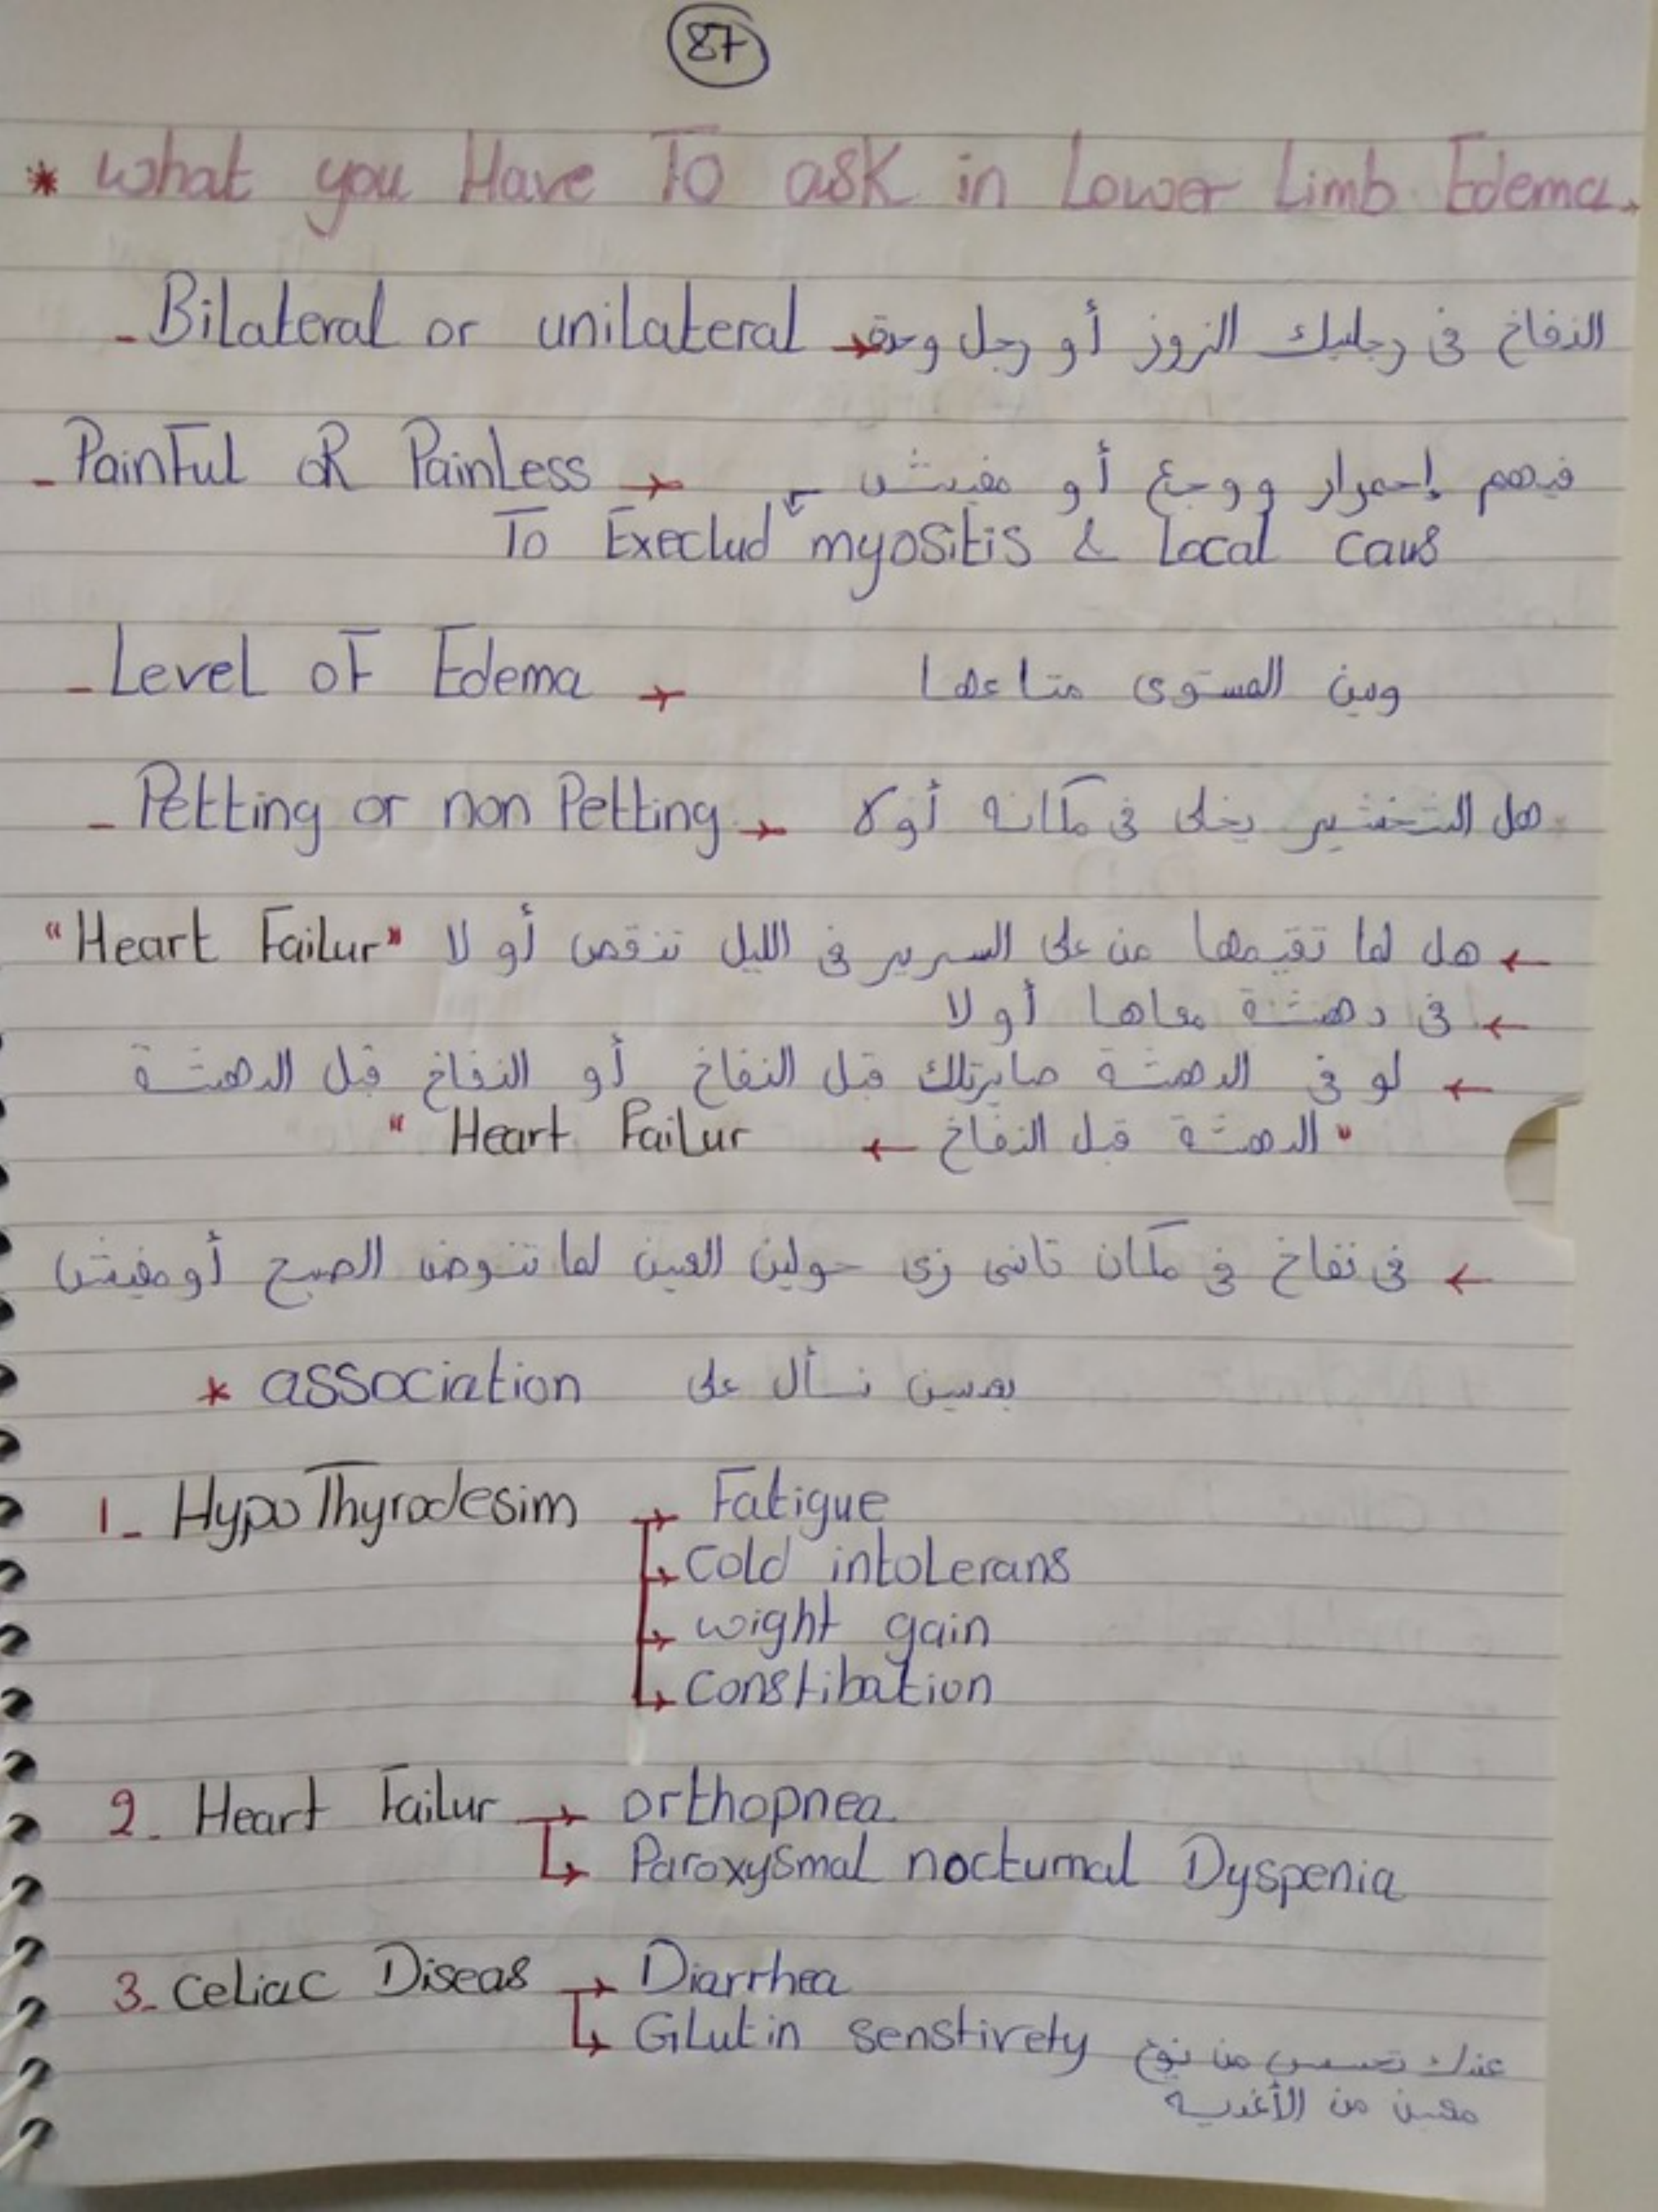 87
* What you Have To ask in Lower Limb Edema.
- Bilateral or unilateral → النفاخ في رجليك الزوز أو رجل وحدة
- Painful oR Painless → فيهم إحمرار ووجع أو مفيش
To Execlud myositis & Local caus
- Level of Edema → وين المستوى متاعها
- Petting or non Petting → هل التخشير يخلي في مكانه أولا
← هل لما تقيمها من على السرير في الليل تنقص أو لا "Heart Failur"
← في دهشة معاها أولا
← لو في الدهشة صايرتلك قبل النفاخ أو النفاخ قبل الدهشة
"الدهشة قبل النفاخ ← Heart Failur"
← في نفاخ في مكان تاني زي حولين العين لما تنوض الصبح أو مفيش
* association بعدين نسأل على
1- HypoThyrodesim → Fatigue
→ Cold intolerans
→ wight gain
→ Constibation
2- Heart Failur → orthopnea
→ Paroxysmal nocturnal Dyspenia
3- Celiac Diseas → Diarrhea
→ Glutin senstirety عندك تحسس من نوع
معين من الأغذية